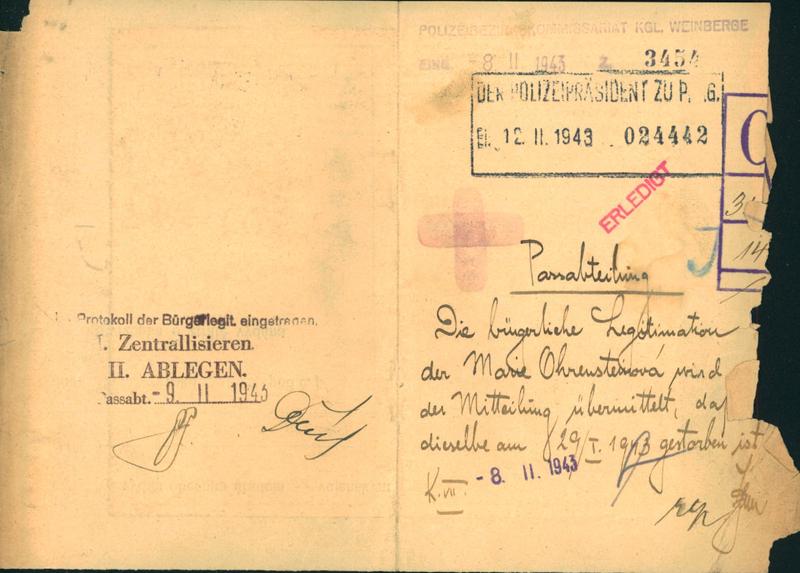 Protokoll der Bürgerlegit. eingetragen.
I. Zentrallisieren.
II. ABLEGEN.
Passabt. - 9. II 1943
POLIZEIBEZIRKSKOMMISSARIAT KGL. WEINBERGE
EING. - 8 II 1943 Z. 3454
DER POLIZEIPRÄSIDENT ZU P. .G.
12. II. 1943 024442
ERLEDIGT
3
14
J
Passabteilung
Die bürgerliche Legitimation
der Marie Ohrensteinová wird
der Mitteilung übermittelt, daß
dieselbe am 29/I. 1943 gestorben ist
K. VII. - 8. II. 1943